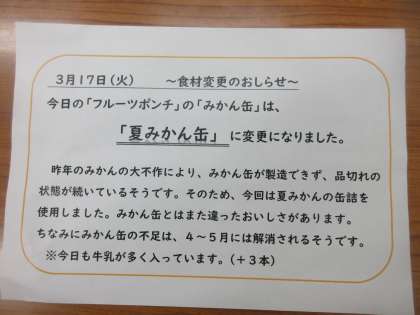 3月17日(火)　～食材変更のおしらせ～
今日の「フルーツポンチ」の「みかん缶」は、
「夏みかん缶」 に変更になりました。
昨年のみかんの大不作により、みかん缶が製造できず、品切れの
状態が続いているそうです。そのため、今回は夏みかんの缶詰を
使用しました。みかん缶とはまた違ったおいしさがあります。
ちなみにみかん缶の不足は、4～5月には解消されるそうです。
※今日も牛乳が多く入っています。(+3本)